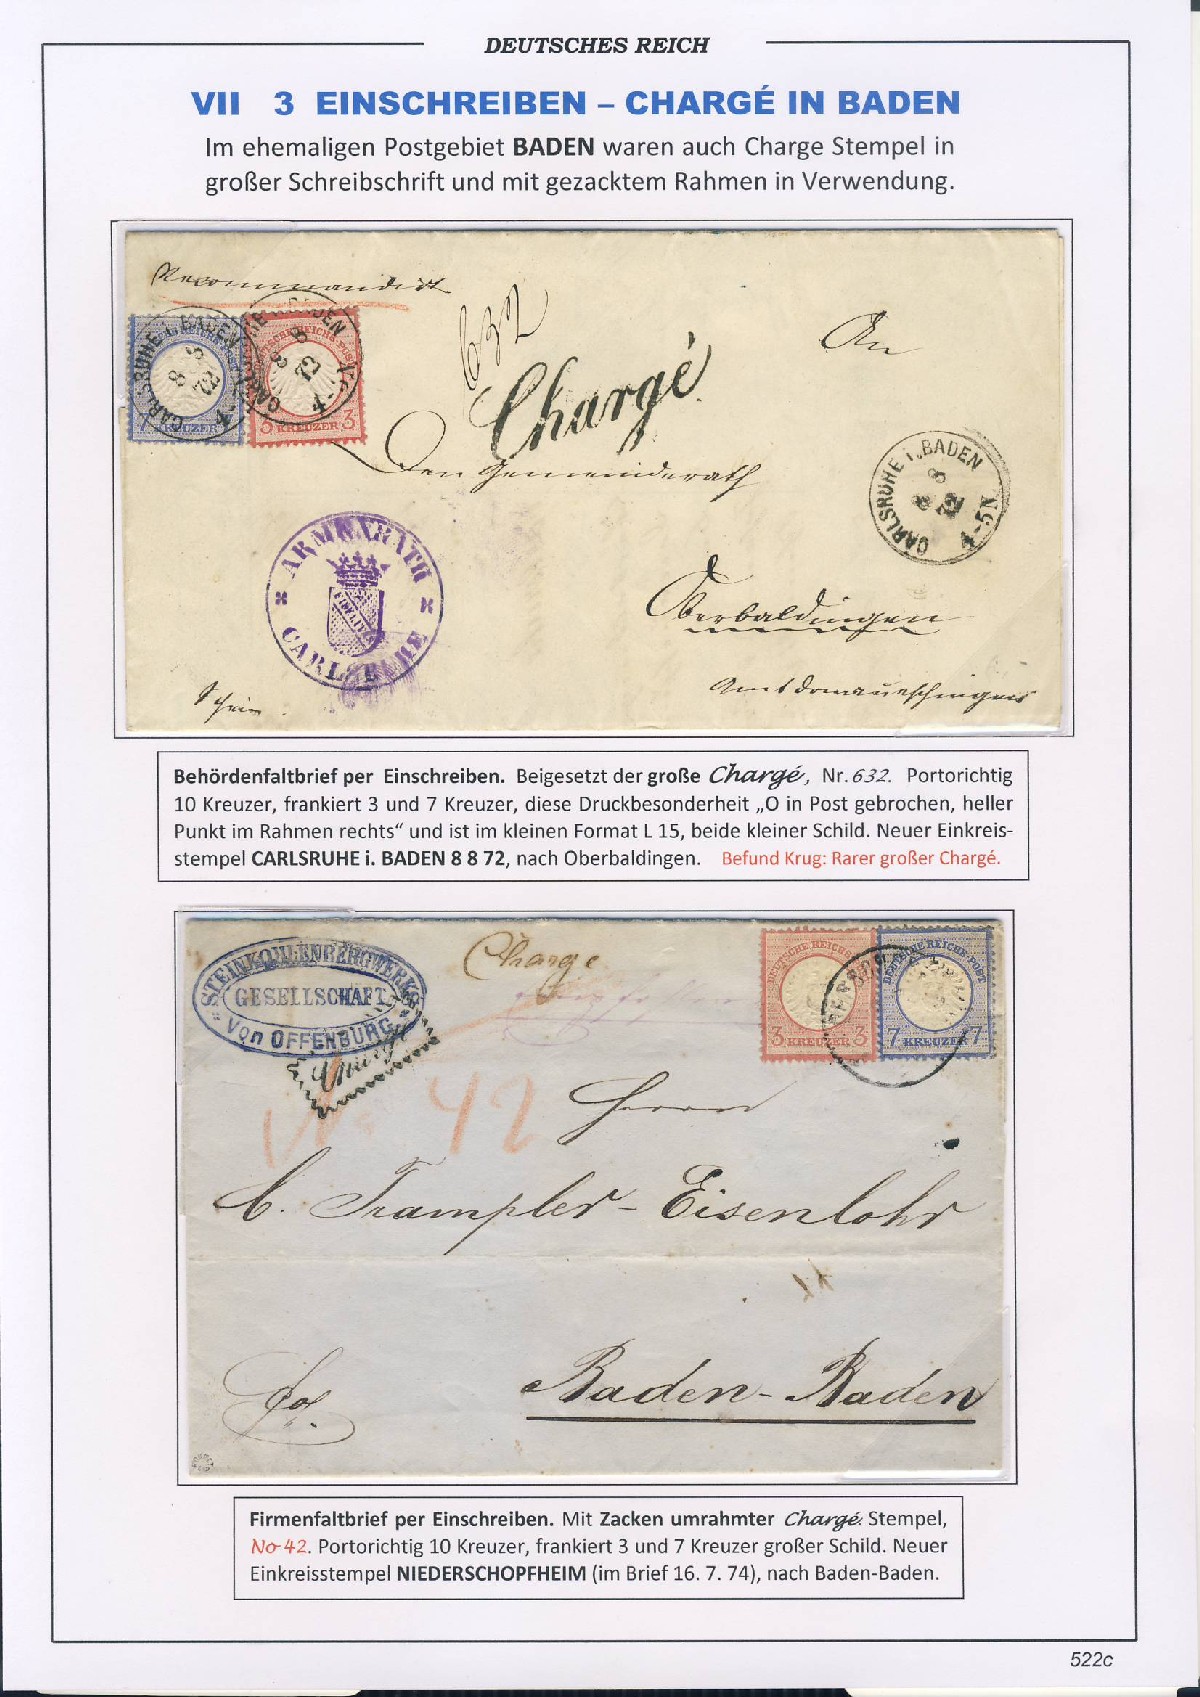 DEUTSCHES REICH
VII 3 EINSCHREIBEN – CHARGÉ IN BADEN
Im ehemaligen Postgebiet BADEN waren auch Charge Stempel in
großer Schreibschrift und mit gezacktem Rahmen in Verwendung.
Recommandirt
632
Chargé
An
CARLSRUHE i. BADEN
8 8
72
CARLSRUHE i. BADEN
8 8
72
7 KREUZER
3 KREUZER 3
Den Gemeinderath
CARLSRUHE i. BADEN
8 8
72
4-5N
ARMENRATH
CARLSRUHE
Oberbaldingen
Amt Donaueschingen
Schein
Behördenfaltbrief per Einschreiben. Beigesetzt der große Chargé, Nr. 632. Portorichtig
10 Kreuzer, frankiert 3 und 7 Kreuzer, diese Druckbesonderheit „O in Post gebrochen, heller
Punkt im Rahmen rechts“ und ist im kleinen Format L 15, beide kleiner Schild. Neuer Einkreis-
stempel CARLSRUHE i. BADEN 8 8 72, nach Oberbaldingen. Befund Krug: Rarer großer Chargé.
STEINKOHLENBERGWERKS
GESELLSCHAFT
von OFFENBURG
Charge
Chargé
DEUTSCHE REICHS-POST
3 KREUZER 3
DEUTSCHE REICHS-POST
7 KREUZER 7
No 42
Herrn
C. Trampler-Eisenlohr
Baden-Baden
Firmenfaltbrief per Einschreiben. Mit Zacken umrahmter Chargé. Stempel,
No 42. Portorichtig 10 Kreuzer, frankiert 3 und 7 Kreuzer großer Schild. Neuer
Einkreisstempel NIEDERSCHOPFHEIM (im Brief 16. 7. 74), nach Baden-Baden.
522c